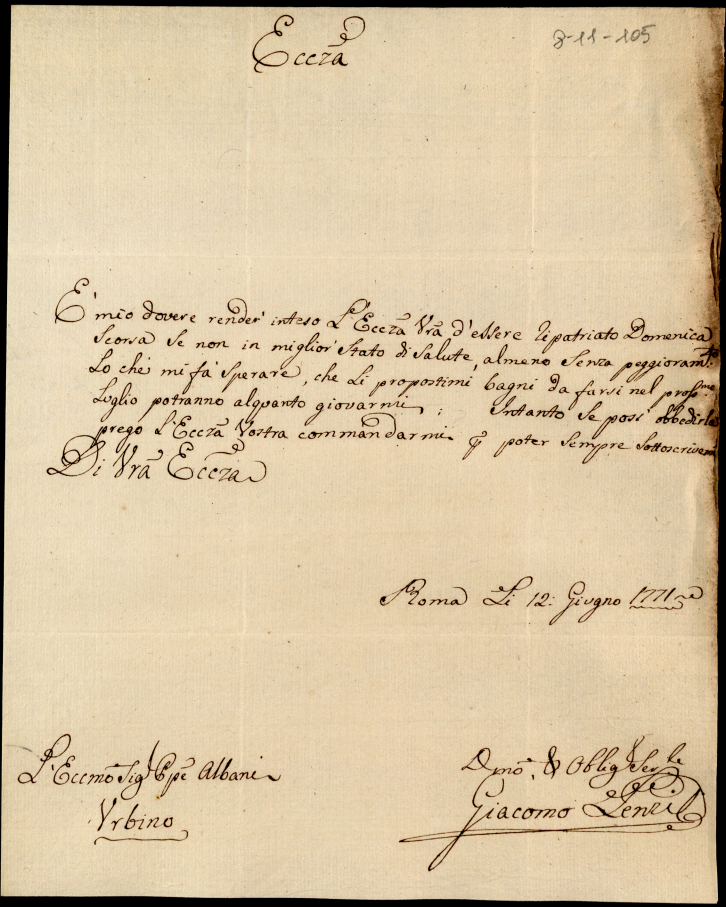 8-11-105
Eccza
È mio dovere render' inteso L'Eccza Vra d'essere ripatriato Domenica
Scorsa se non in miglior Stato di Salute, almeno senza peggioram.to
Lo che mi fà sperare, che Li propostimi bagni da farsi nel pross.mo
Luglio potranno alquanto giovarmi; Intanto se poss' obbedirla
prego L'Eccza Vostra commandarmi poter sempre sottoscriverm
Di Vra Eccza
Roma Li 12: Giugno 1771
L'Eccmo Sig Ppe Albani
Urbino
Dmo, & Oblig Ser.le
Giacomo